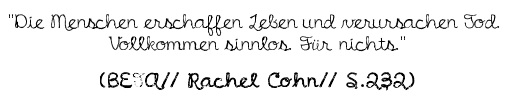 "Die Menschen erschaffen Leben und verursachen Tod.
Vollkommen sinnlos. Für nichts."
(BETA// Rachel Cohn// S.232)